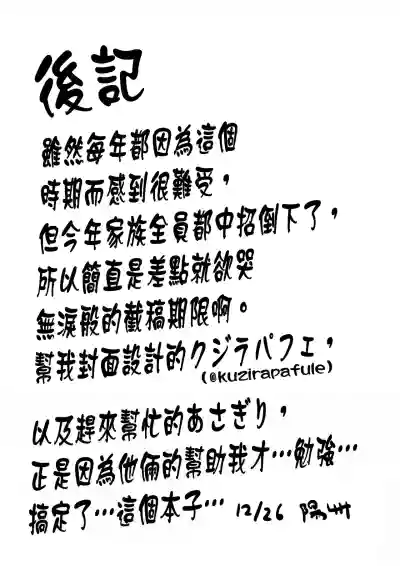 後記
雖然每年都因為這個
時期而感到很難受，
但今年家族全員都中招倒下了，
所以簡直是差點就欲哭
無淚般的截稿期限啊。
幫我封面設計的クジラパフェ，
(@kuzirapafule)
以及趕來幫忙的あさぎり，
正是因為他倆的幫助我才…勉強…
搞定了…這個本子… 12/26 陽州